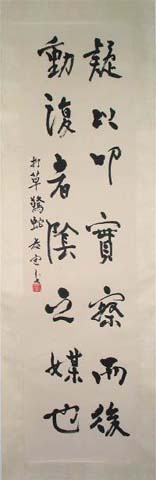 疑以叩實察而後
動復者陰之媒也
打草驚蛇